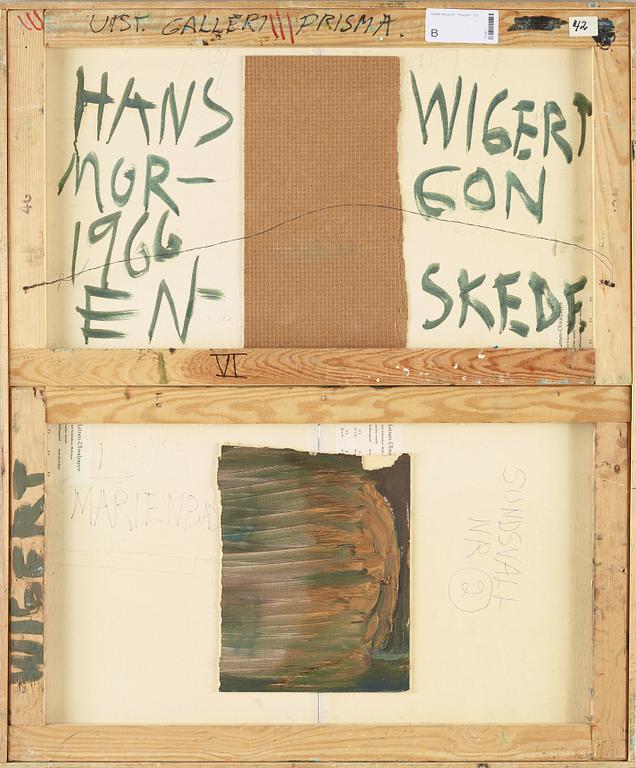 UTST. GALLERI PRISMA.
B
42
HANS WIGERT
MOR- GON
1966
EN- SKEDE.
40
VI
WIGERT
1
MARIENBAD
SUNDSVALL
NR 2